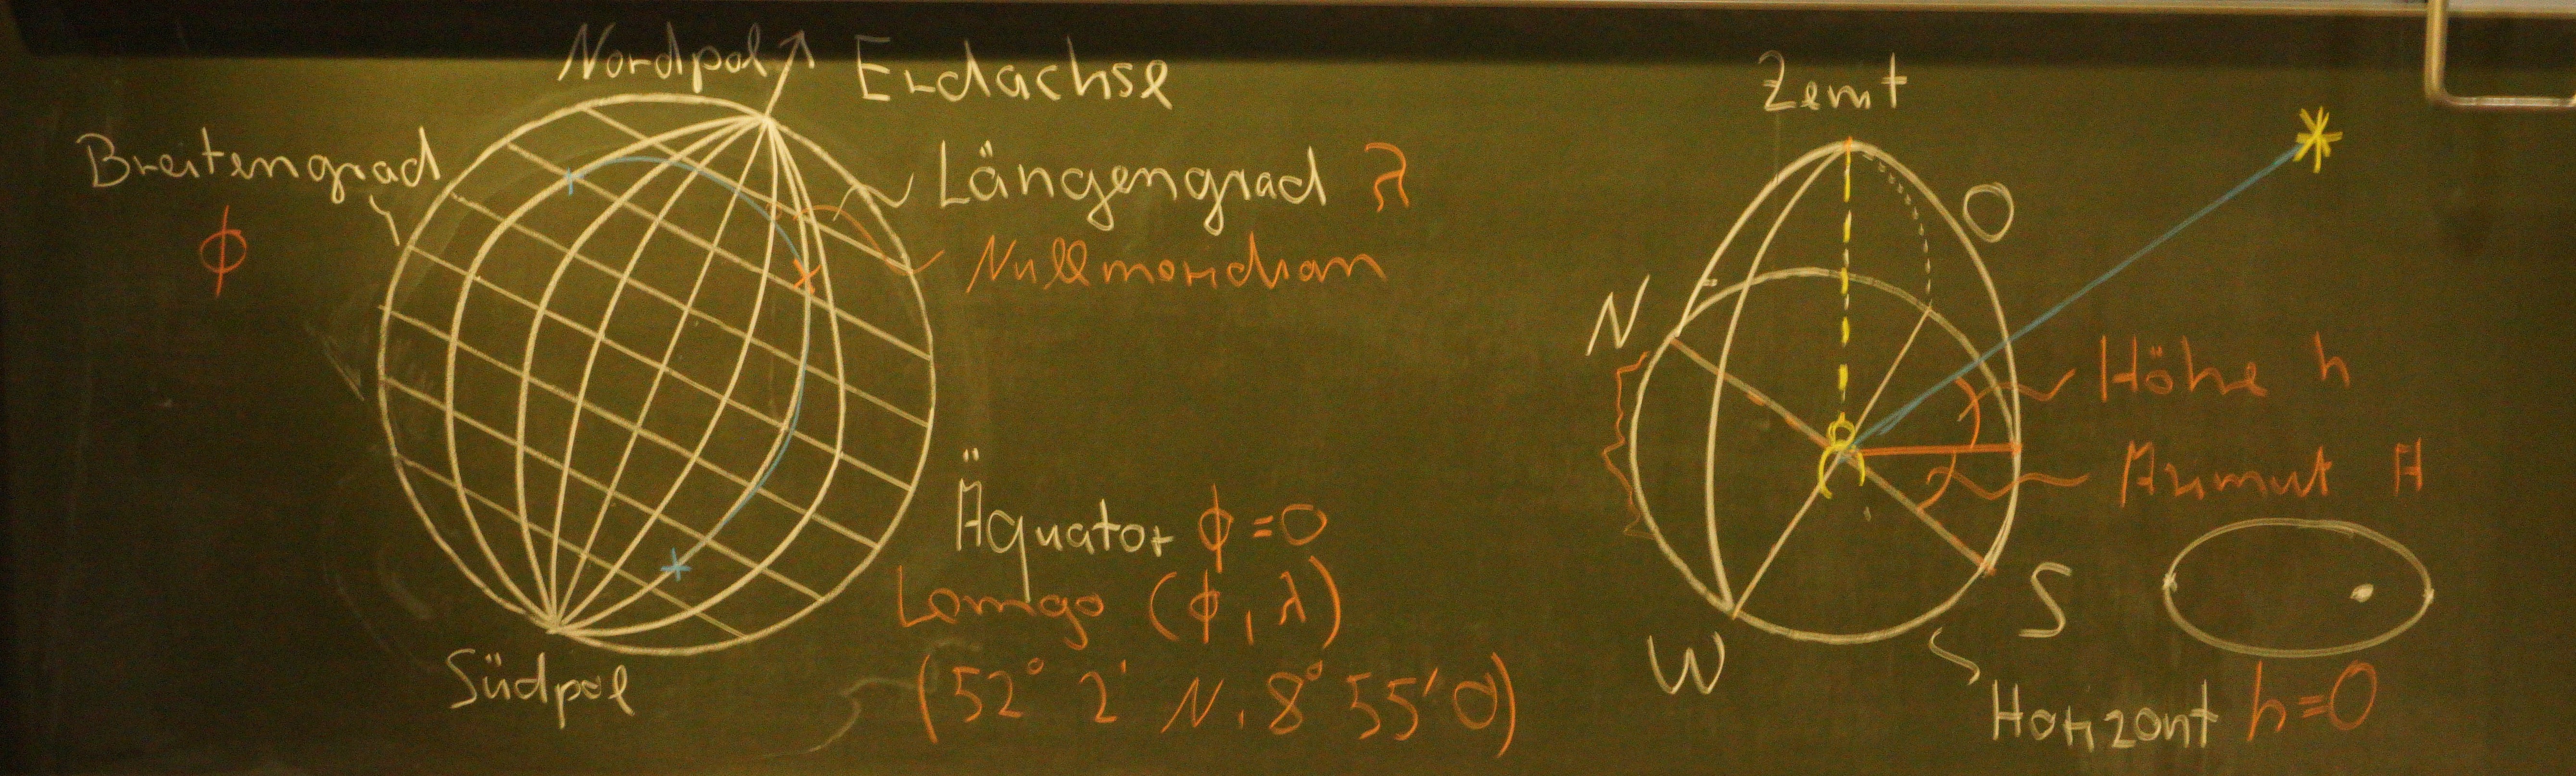 Nordpol
Erdachse
Breitengrad
ϕ
Längengrad λ
Nullmeridian
Äquator ϕ=0
Lemgo (ϕ, λ)
(52° 2' N, 8° 55' O)
Südpol
Zenit
O
N
Höhe h
Azimut A
S
W
Horizont h=0